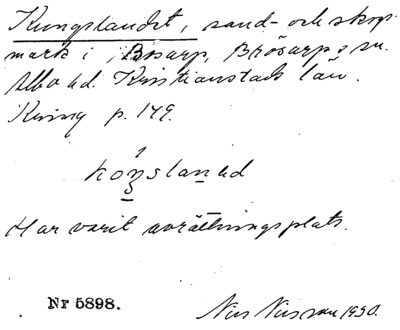 Kungslandet, sand- och skog-
mark i Bösarp, Brösarps sn.
Albo hd. Kristianstads län.
Kring p. 149.
Har varit avrättningsplats.
Nr 5898. Nils Nilsson 1930.